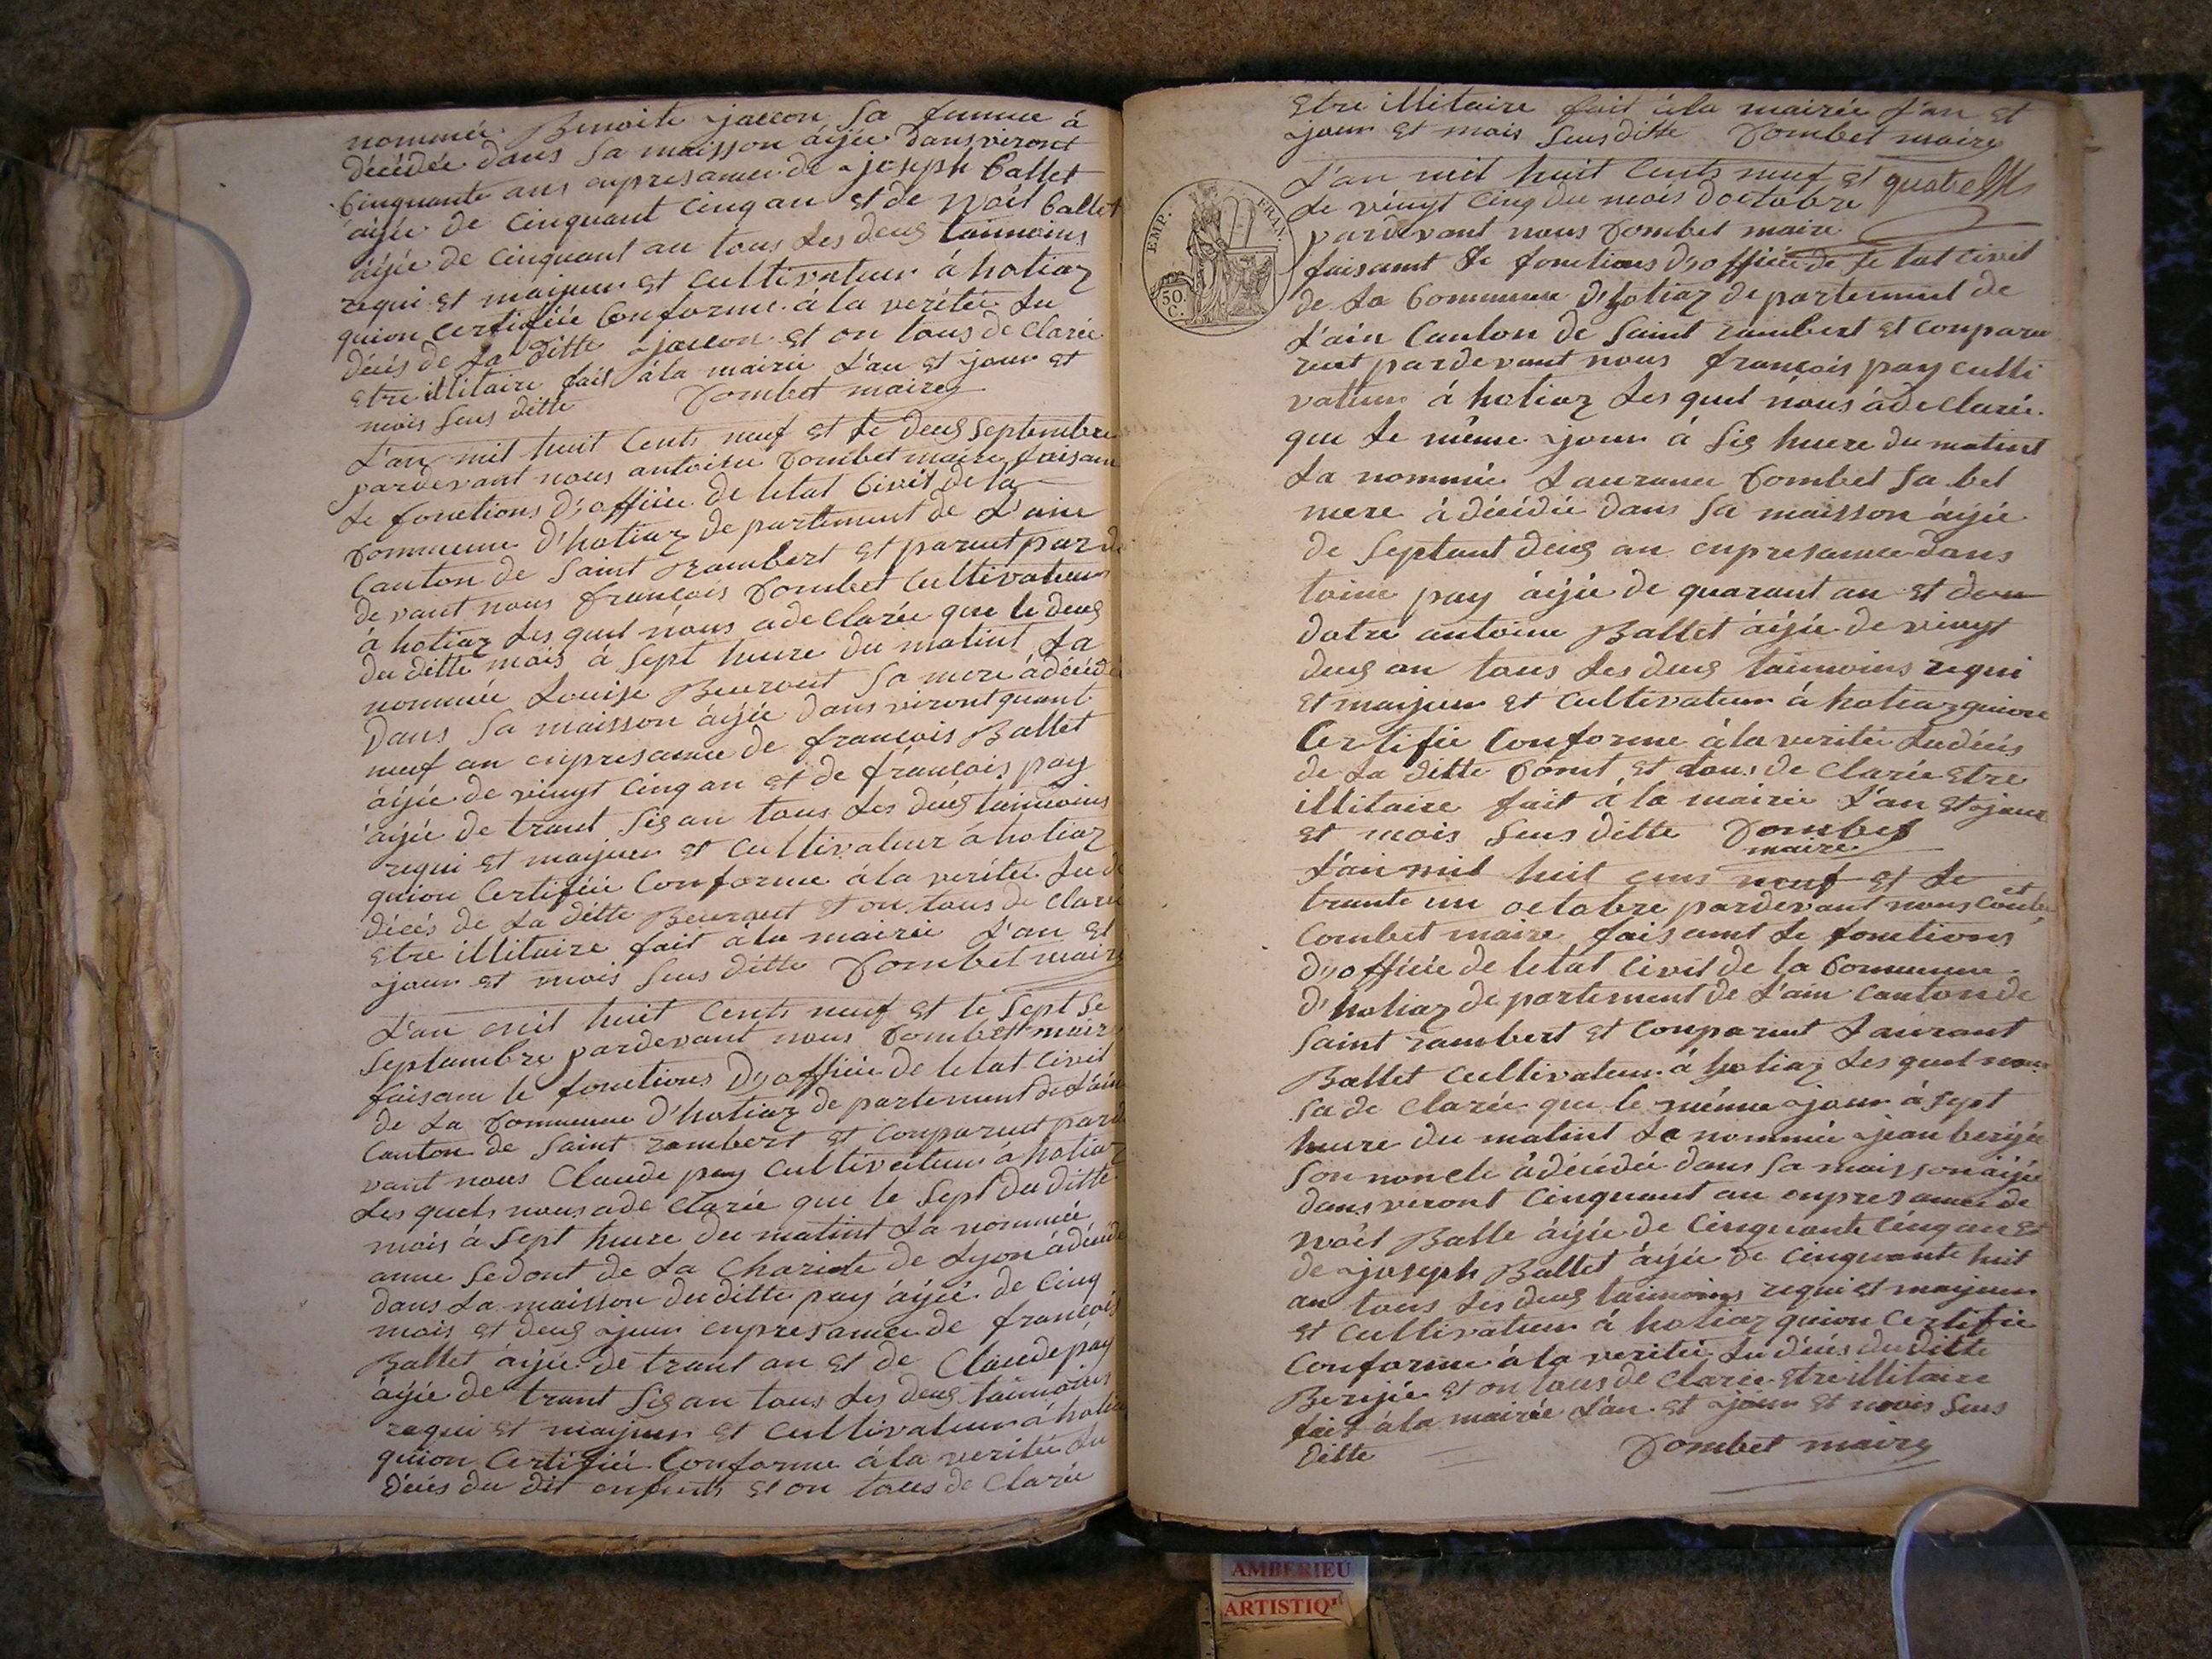 nommée Benoite jaccon sa femme à
décédée dans sa maisson âijée dansviront
Cinquante ans enpresance de joseph Ballet
âijée de cinquant cinq an et de Noël Ballet
âijée de cinquant an tous les deus taimoins
requi et maijeur et cultivateur à hotiaz
quion certifiée Conforme à la veritée du
décés de la ditte jaccon et on tous de clarée
etre illitaire fait à la mairie L'an et jour et
mois sus ditte Combet maire
L'an mil huit Cents neuf et le deus Septembre
pardevant nous antoine Combet maire faisan
le fonctions D'officie de letat Civil de la
Commune D'hotiaz departement de L'ain
Canton de Saint Rambert et parut par de
devant nous françois Combet Cultivateur
à hotiaz Les quel nous adeclarée que le deus
du ditte mois à Sept heure du matint La
nommée Louise Beuront sa mere à décédé
Dans sa maisson âijée dansviront quant
neuf an enpresance de françois Ballet
âijée de vingt cinq an et de françois pay
âijée de trant sis an tous les deus taimoins
requi et maijeur et Cultivateur à hotiaz
quion Certifiée Conforme à la veritée du de
décés de la ditte Beuront et on tous de clarée
etre illitaire fait à la mairie L'an et
jour et mois sus ditte Combet maire
L'an mil huit Cents neuf et le Sept Se
Septambre pardevant nous Combet maire
faisan le fonctions D'officie de letat Civil
de La Commune d'hotiaz departement de L'ain
Canton de Saint rambert et Conparut parde
vant nous Claude pay Cultivateur à hotiaz
Les quels nous ade clarée que le Sept du ditte
mois à Sept heure du matint La nommée
anne Sedont de La Charitte de Lyon à décédé
dans La maisson du ditte pay âijée de Cinq
mois et deus jour enpresance de françois
Ballet âijée de trant an et de Claude pay
âijée de trant sis an tous les deus taimoins
requi et maijeur et Cultivateur à hotiaz
quion Certifiée Conforme à la veritée du
décés du dit enfents et on tous de Clarée
etre illitaire fait à la mairie L'an et
jour et mois sus ditte Combet maire
L'an mil huit Cents neuf et quatre
le vingt cinq du mois doctobre
pardevant nous Combet maire
faisamt le fonctions D'officie de letat civil
de La Commune D'hotiaz departement de
L'ain Canton de Saint rambert et conparu
rut pardevant nous françois pay culti
vateur à hotiaz Les quel nous âdeclarée
que le même jour à sis heure du matint
La nommée Laurance Combet sa bel
mere à décédée dans sa maisson âijée
de Septant deus an enpresance dans
toine pay âijée de quarant an et deu
dotre antoine Ballet âijée de vingt
deus an tous les deus taimoins requi
et maijeur et Cultivateur à hotiaz quion
Certifie Conforme à la veritée du décés
de La ditte Comt et tous de clarée etre
illitaire fait à la mairie L'an et jour
et mois sus ditte Combet
maire
L'an mil huit cens neuf et le
trante un octobre pardevant nous
Combet maire faisamt le fonctions
D'officie de letat civil de la Commune
d'hotiaz departement de L'ain Canton de
Saint rambert et Conparut Laurant
Ballet Cultivateur à hotiaz Les quel nous
sa de clarée que le même jour à Sept
heure du matint Le nommée jean berijée
son noncle à décédée dans sa maisson âijée
dansviront Cinquant an enpresance de
Noël Balle âijée de Cinquante Cinq an et
de joseph Ballet âijée de cinquante huit
an tous les deus taimoins requi et maijeur
et Cultivateur à hotiaz quion Certifie
Conforme à la veritée du décés du ditte
Berijée et on tous de Clarée etre illitaire
fait à la mairie L'an et jour et mois sus
ditte Combet maire
EMP. FRAN.
50
C.
AMBERIEU
ARTISTIQ